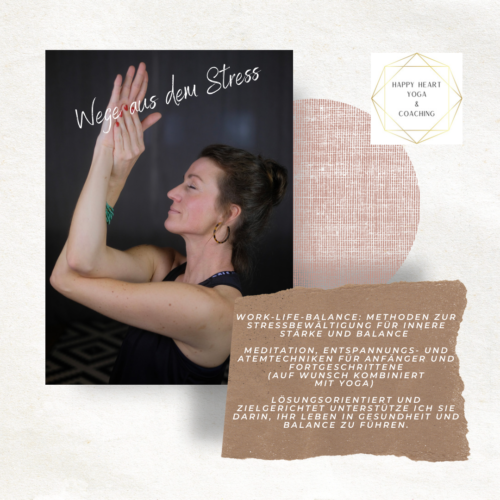 Wege aus dem Stress
HAPPY HEART
YOGA
&
COACHING
WORK-LIFE-BALANCE: METHODEN ZUR
STRESSBEWÄLTIGUNG FÜR INNERE
STÄRKE UND BALANCE
MEDITATION, ENTSPANNUNGS- UND
ATEMTECHNIKEN FÜR ANFÄNGER UND
FORTGESCHRITTENE
(AUF WUNSCH KOMBINIERT
MIT YOGA)
LÖSUNGSORIENTIERT UND
ZIELGERICHTET UNTERSTÜTZE ICH SIE
DARIN, IHR LEBEN IN GESUNDHEIT UND
BALANCE ZU FÜHREN.